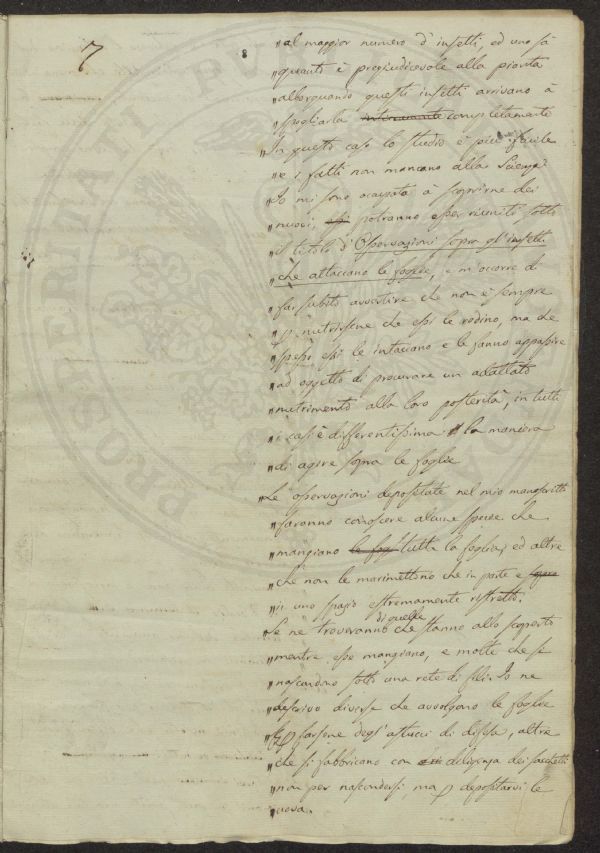 7
8
"al maggior numero d'insetti, ed uno sà
"quanto è pregiudicevole alla pianta
"alborquando questi insetti arrivano à
"spogliarla completamente
"In questo caso lo studio è più facile
"e i fatti non mancano alla Scienza
"Io mi sono occupato à scoprirne dei
"nuovi, potranno esser riuniti sotto
"il titolo d'Osservazioni sopra gl'insetti
"che attaccano le foglie, e m'occorre di
"far subito avvertire che non è sempre
"p nutrirsene che essi le rodino, ma che
"spesso essi le intaccano e le fanno appassire
"ad oggetto di procurare un adattato
"nutrimento alla loro posterità, in tutti
"i casi è differentissima la maniera
"di agire sopra le foglie
"Le osservazioni depositate nel mio manoscritto
"faranno conoscere alcune specie che
"mangiano le fogl tutta la foglia, ed altre
"che non le manimettono che in parte e sopra
"in uno spazio estremamente ristretto.
di quelle
"Se ne troveranno che stanno allo scoperto
"mentre esse mangiano, e molte che si
"nascondono sotto una rete di fili. Io ne
"descrivo diverse che avvolgono le foglie
"p farsene degl'astucci di difesa, altre
"che si fabbricano con diligenza dei sacchetti
"non per nascondersi, ma p depositarvi le
"uova.